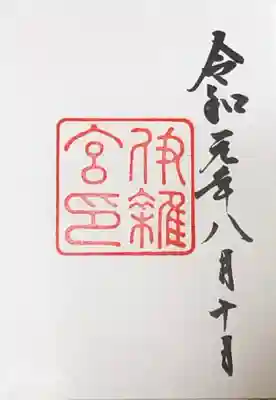 令和元年八月十日
伊雜
宮印